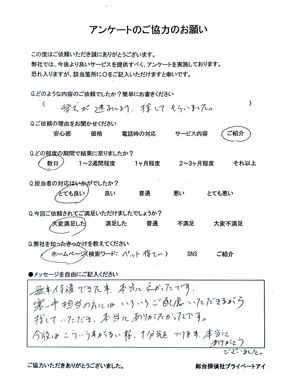 アンケートのご協力のお願い
この度はご依頼いただき誠にありがとうございます。
弊社では、今後より良いサービスを提供すべく、アンケートを実施しております。
恐れ入りますが、該当箇所に○をご記入いただけますと幸いです。
Q.どのような内容のご依頼でしたか?簡単にお書きください
( 愛犬が逃走により、捜してもらいました。 )
Q.ご依頼の理由をお聞かせください
安心感 価格 電話時の対応 サービス内容 ご紹介
Q.どの程度の期間で結果に至りましたか?
数日 1～2週間程度 1ヶ月程度 2～3ヶ月程度 それ以上
Q.担当者の対応はいかがでしたか?
とても良い 良い 普通 悪い とても悪い
Q.今回ご依頼されてご満足いただけましたでしょうか?
大変満足した 満足 普通 不満足 大変不満足
Q.弊社を知ったきっかけを教えてください
ホームページ(検索ワード: ペット捜し ) SNS ご紹介
●メッセージを自由にご記入ください
無事保護できた事、本当に良かったです。
寒い中担当の方にはいろいろご配慮いただきながら
捜していただき、本当にありがたかったです。
今後はこういう事がない様、十分気をつけます。本当に
ありがとう
ございました。
ご協力いただきありがとうございました。
総合探偵社プライベートアイ